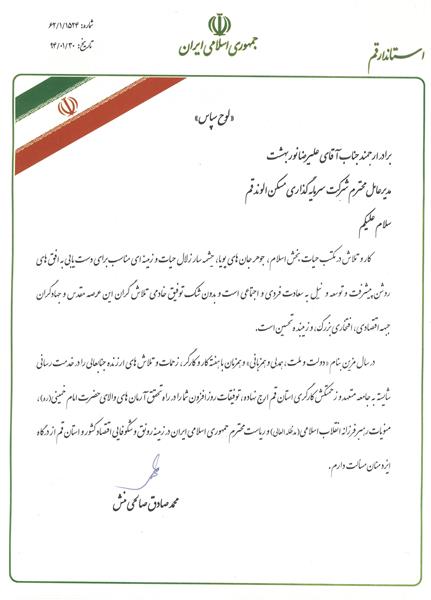 شماره: ۶۲/۱/۱۵۲۴
تاریخ: ۹۴/۰۱/۳۰
جمهوری اسلامی ایران
استاندار قم
«لوح سپاس»
برادر ارجمند جناب آقای علیرضا نور بهشت
مدیرعامل محترم شرکت سرمایه گذاری مسکن الوند قم
سلام علیکم
کار و تلاش در مکتب حیات بخش اسلام، جوهر جان های پویا، چشمه سار زلال حیات و زمینه ای مناسب برای دست یابی به افق های
روشن پیشرفت و توسعه و نیل به سعادت فردی و اجتماعی است و بدون شک توفیق خادمی تلاش گران این عرصه مقدس و جهادگران
جبهه اقتصادی، افتخاری بزرگ، و زیبنده تحسین است.
در سال مزین بنام «دولت و ملت، همدلی و همزبانی» و همزمان با هفته کار و کارگر، زحمات و تلاش های ارزنده جنابعالی را در خدمت رسانی
شایسته به جامعه متعهد و زحمتکش کارگری استان قم ارج نهاده، توفیقات روز افزون شما را در راه تحقق آرمان های والای حضرت امام خمینی (ره)،
منویات رهبر فرزانه انقلاب اسلامی (مدظله العالی) و ریاست محترم جمهوری اسلامی ایران در زمینه رونق و شکوفایی اقتصاد کشور و استان قم از درگاه
ایزد منان مسألت دارم.
محمد صادق صالحی منش